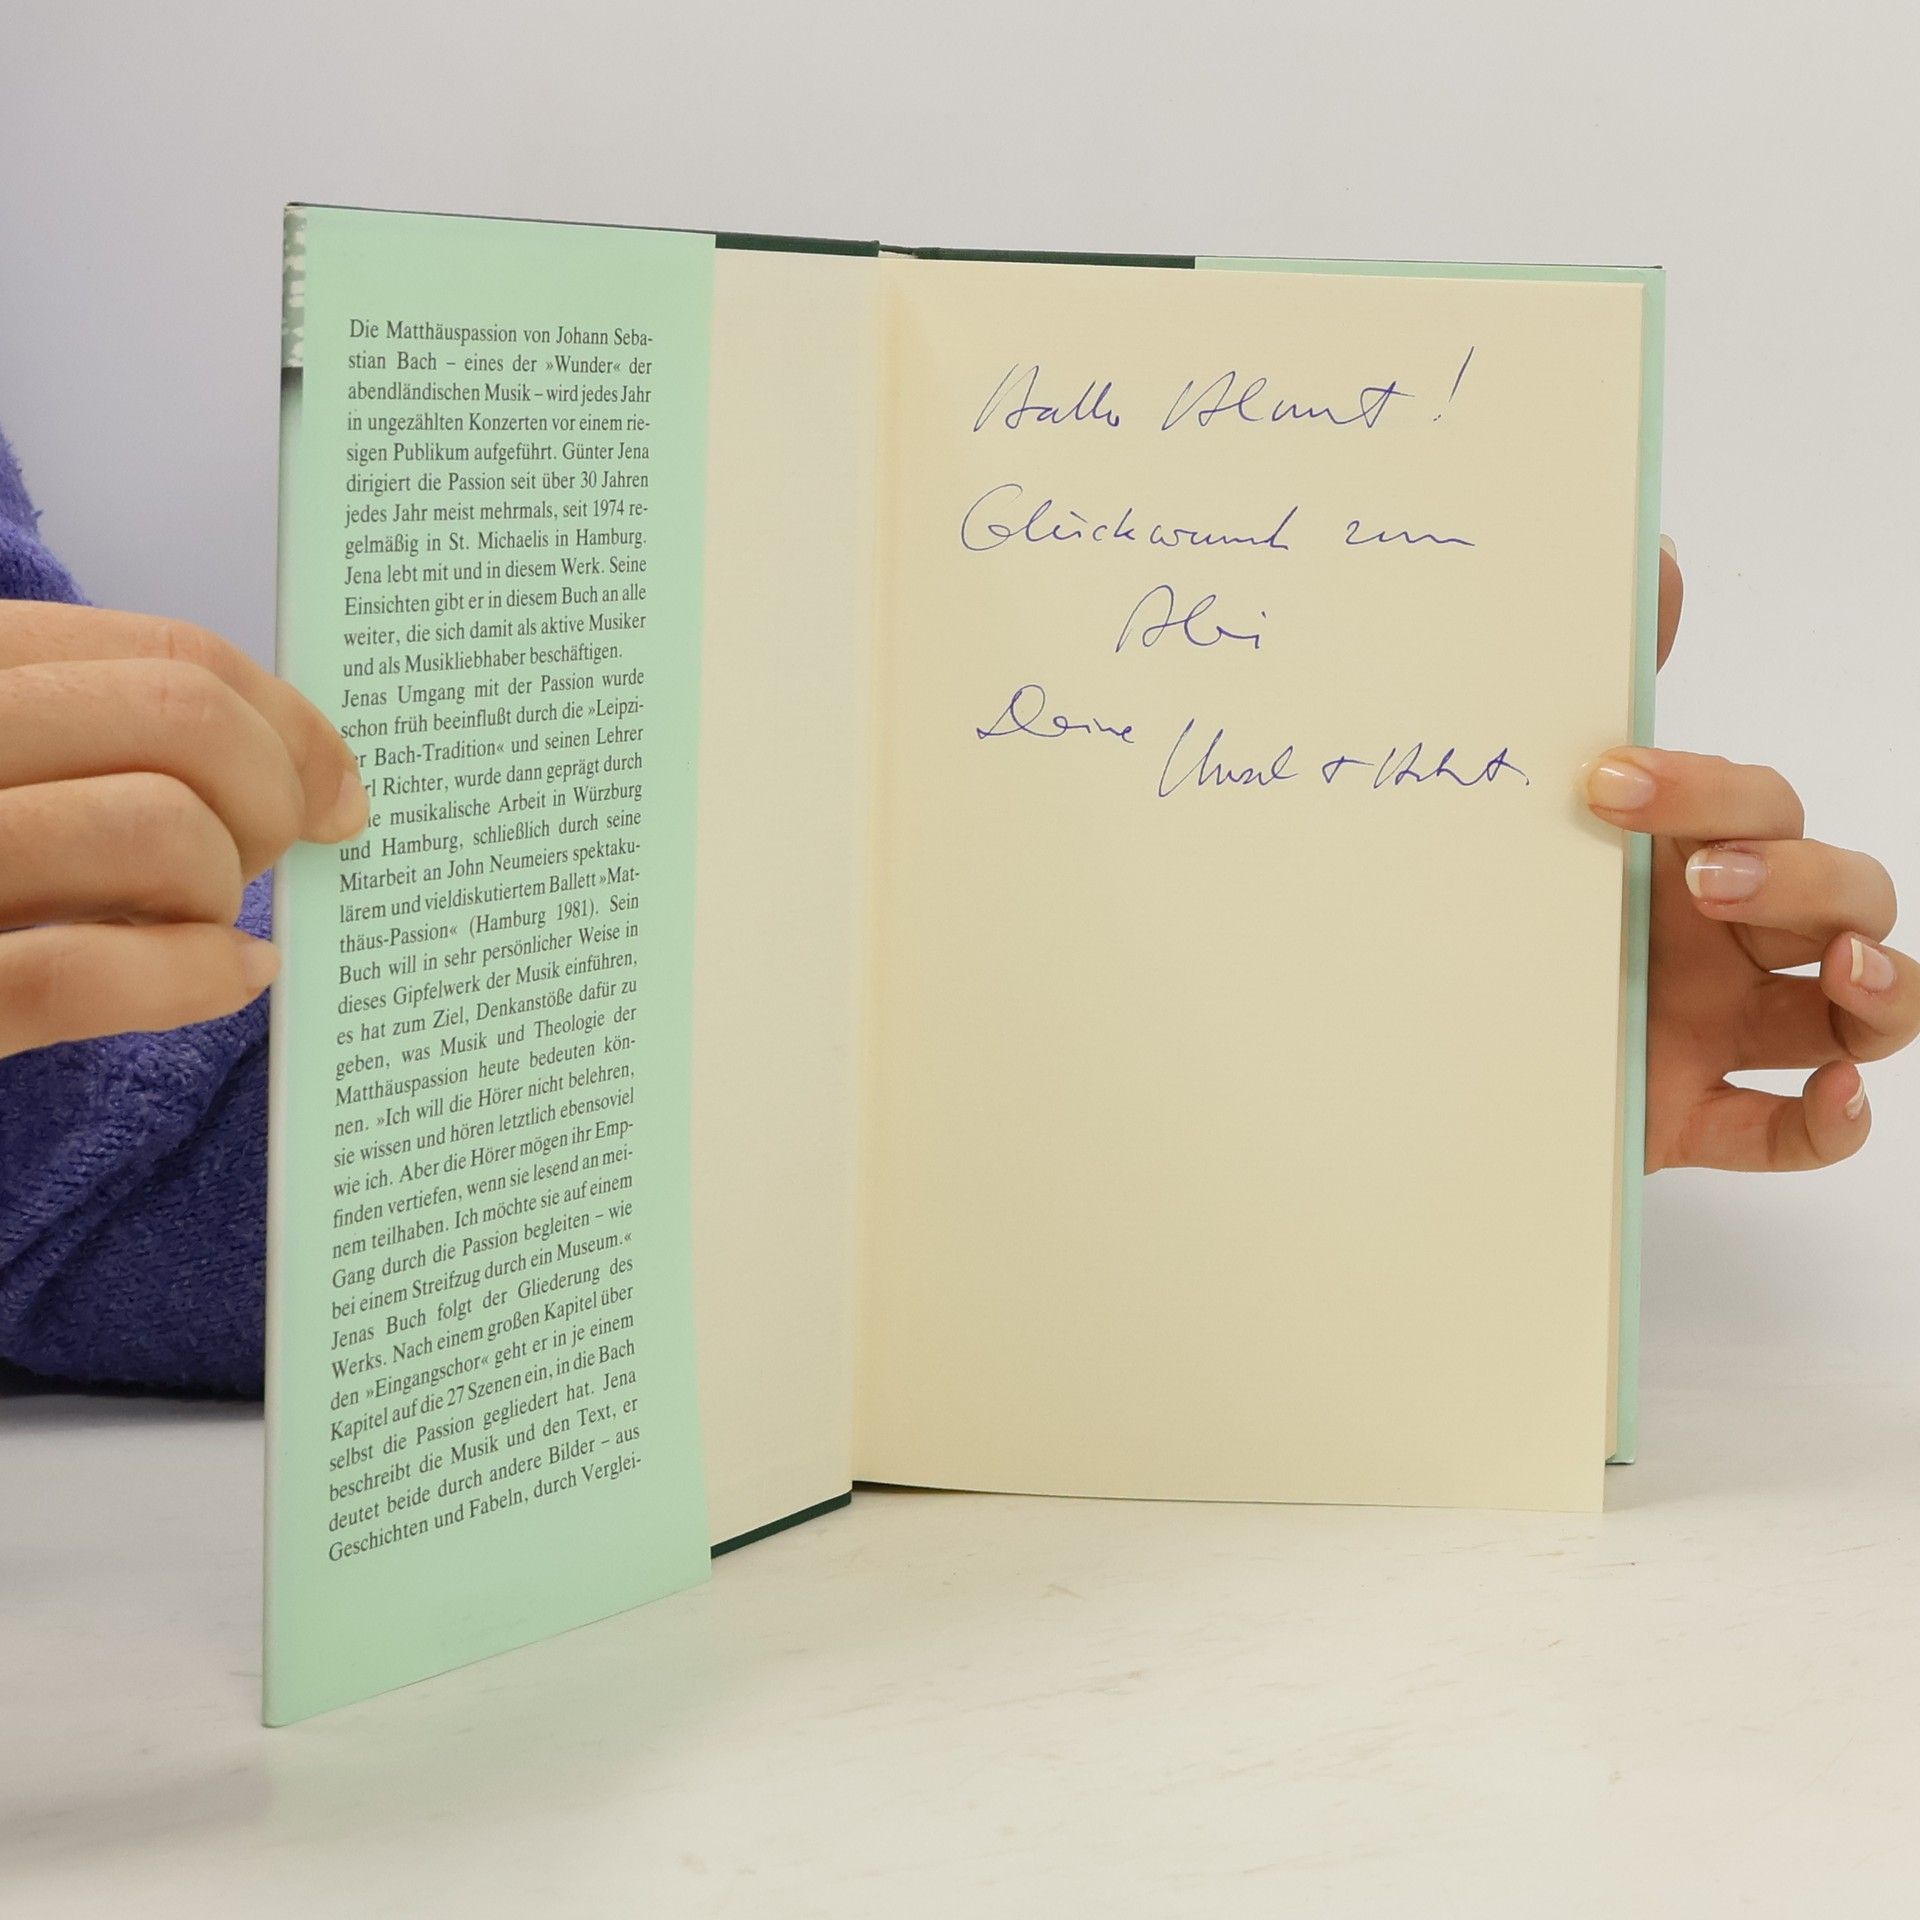 Die Matthäuspassion von Johann Seba-
stian Bach – eines der »Wunder« der
abendländischen Musik – wird jedes Jahr
in ungezählten Konzerten vor einem rie-
sigen Publikum aufgeführt. Günter Jena
dirigiert die Passion seit über 30 Jahren
jedes Jahr meist mehrmals, seit 1974 re-
gelmäßig in St. Michaelis in Hamburg.
Jena lebt mit und in diesem Werk. Seine
Einsichten gibt er in diesem Buch an alle
weiter, die sich damit als aktive Musiker
und als Musikliebhaber beschäftigen.
Jenas Umgang mit der Passion wurde
schon früh beeinflußt durch die »Leipzi-
er Bach-Tradition« und seinen Lehrer
rl Richter, wurde dann geprägt durch
musikalische Arbeit in Würzburg
und Hamburg, schließlich durch seine
Mitarbeit an John Neumeiers spektaku-
lärem und vieldiskutiertem Ballett »Mat-
thäus-Passion« (Hamburg 1981). Sein
Buch will in sehr persönlicher Weise in
dieses Gipfelwerk der Musik einführen,
es hat zum Ziel, Denkanstöße dafür zu
geben, was Musik und Theologie der
Matthäuspassion heute bedeuten kön-
nen. »Ich will die Hörer nicht belehren,
sie wissen und hören letztlich ebensoviel
wie ich. Aber die Hörer mögen ihr Emp-
finden vertiefen, wenn sie lesend an mei-
nem teilhaben. Ich möchte sie auf einem
Gang durch die Passion begleiten – wie
bei einem Streifzug durch ein Museum.«
Jenas Buch folgt der Gliederung des
Werks. Nach einem großen Kapitel über
den »Eingangschor« geht er in je einem
Kapitel auf die 27 Szenen ein, in die Bach
selbst die Passion gegliedert hat. Jena
beschreibt die Musik und den Text, er
deutet beide durch andere Bilder – aus
Geschichten und Fabeln, durch Verglei-
Hallo !
Glückwunsch zum
Abi
Deine
+